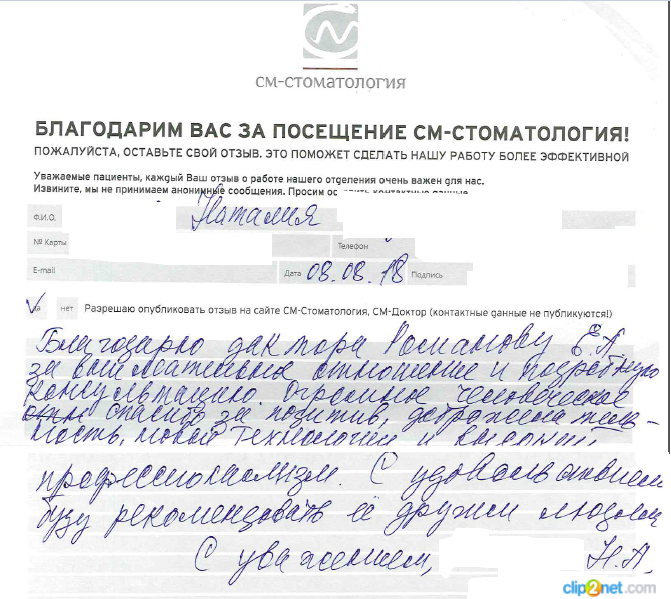 СМ-СТОМАТОЛОГИЯ
БЛАГОДАРИМ ВАС ЗА ПОСЕЩЕНИЕ СМ-СТОМАТОЛОГИЯ!
ПОЖАЛУЙСТА, ОСТАВЬТЕ СВОЙ ОТЗЫВ. ЭТО ПОМОЖЕТ СДЕЛАТЬ НАШУ РАБОТУ БОЛЕЕ ЭФФЕКТИВНОЙ
Уважаемые пациенты, каждый Ваш отзыв о работе нашего отделения очень важен для нас.
Извините, мы не принимаем анонимные сообщения. Просим контактные данные
Ф.И.О. Наталия
№ Карты Телефон
E-mail Дата 08.08.18 Подпись
да нет Разрешаю опубликовать отзыв на сайте СМ-Стоматология, СМ-Доктор (контактные данные не публикуются!)
Благодарю доктора Романову Е.А
за внимательное отношение и подробную
консультацию. Огромное человеческое
спасибо за позитив, доброжелатель-
ность, новые технологии и
профессионализм. С удовольствием
буду рекомендовать её другим людям
С уважением, Н.А.
clip2net.com